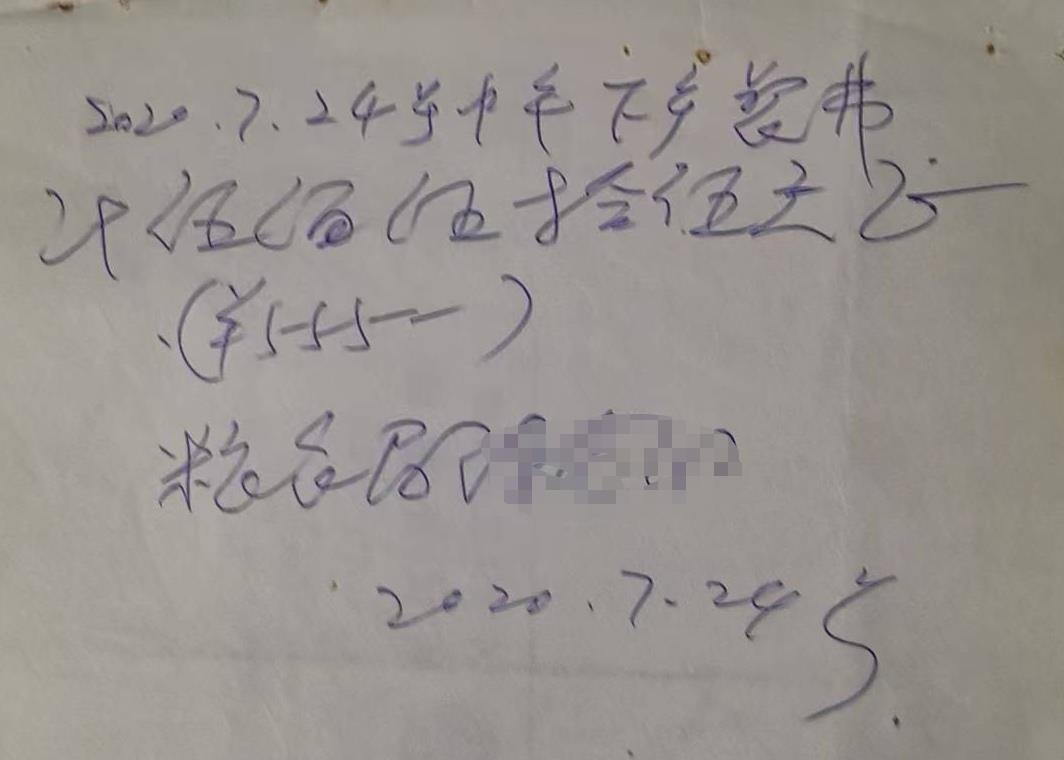 2020.7.24号中午下乡餐费
计伍佰伍拾伍元正
(¥555—)
2020.7.24号